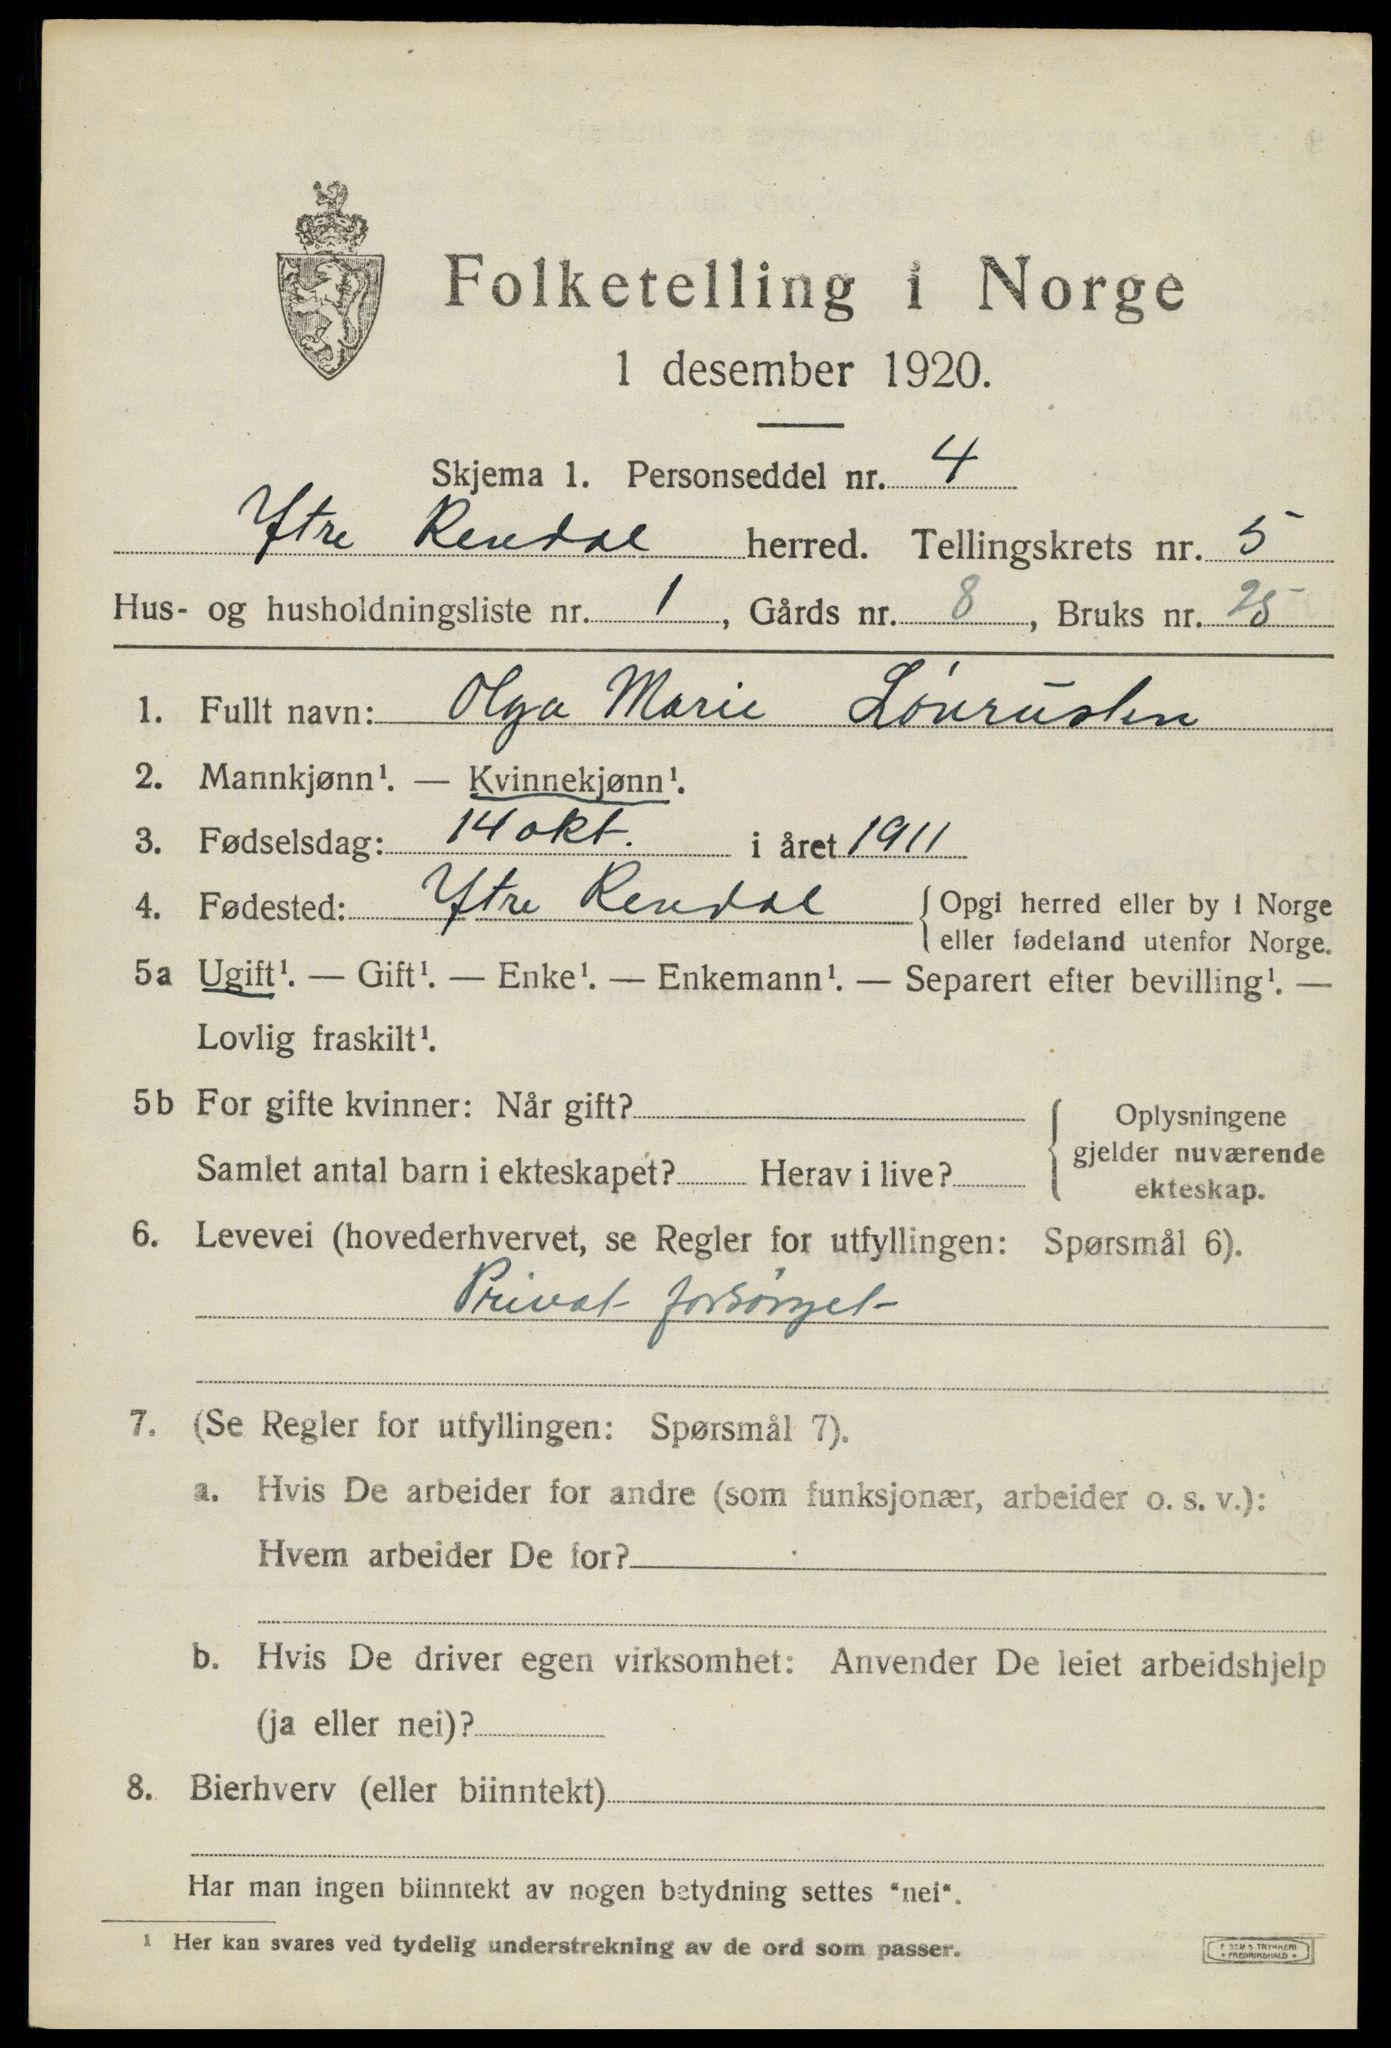 Folketelling i Norge
1 desember 1920.
Skjema 1. Personseddel nr. 4
Ytre Rendal herred. Tellingskrets nr. 5
Hus- og husholdningsliste nr. 1, Gårds nr. 8, Bruks nr. 25
1. Fullt navn: Olga Marie Lønrusten
2. Mannkjønn¹. — Kvinnekjønn¹.
3. Fødselsdag: 14 okt. i året 1911
4. Fødested: Ytre Rendal { Opgi herred eller by i Norge
eller fødeland utenfor Norge.
5a Ugift¹. — Gift¹. — Enke¹. — Enkemann¹. — Separert efter bevilling¹. —
Lovlig fraskilt¹.
5b For gifte kvinner: Når gift?
Samlet antal barn i ekteskapet? Herav i live?
{ Oplysningene
gjelder nuværende
ekteskap.
6. Levevei (hovederhvervet, se Regler for utfyllingen: Spørsmål 6).
Privat forsørget
7. (Se Regler for utfyllingen: Spørsmål 7).
a. Hvis De arbeider for andre (som funksjonær, arbeider o. s. v.):
Hvem arbeider De for?
b. Hvis De driver egen virksomhet: Anvender De leiet arbeidshjelp
(ja eller nei)?
8. Bierhverv (eller biinntekt)
Har man ingen biinntekt av nogen betydning settes "nei".
¹ Her kan svares ved tydelig understrekning av de ord som passer.
P. SEM'S TRYKKERI
• FREDRIKSHALD •